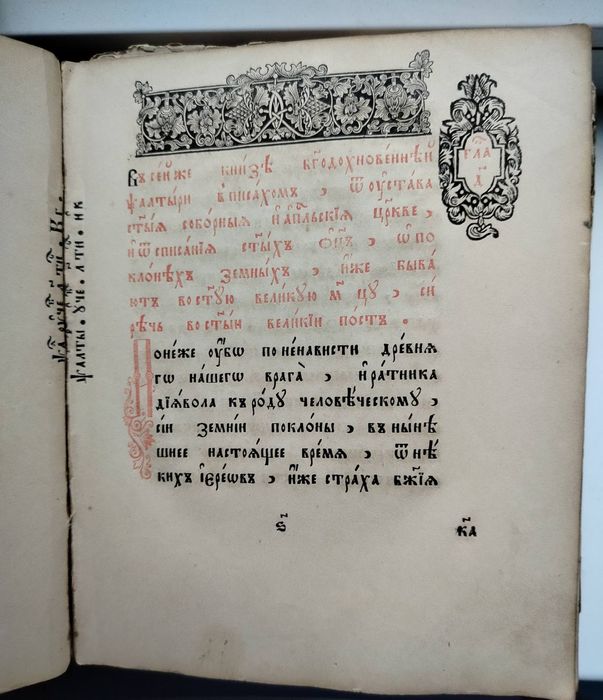 Въсе́йже кни́зѣ бг҃одохнове́ннѣй
ѱалты́ри впи́сахомъ, ѿꙋста́ва
ст҃ы́ѧ собо́рныѧ иа҆пⷭ҇льскїѧ цр҃кве,
иѿписа́нїѧ ст҃ы́хъ ѻ҆ц҃ъ, ѡ҆по
кло́нѣхъ зе́мныхъ, и҆́же быва́
ютъ во ст҃ꙋ́ю вели́кꙋю м҃цꙋ, си́
рѣчь во ст҃ы́и вели́кїи по́стъ.
Поне́же ᲂу҆́бѡ по не́нависти дре́внѧ
гѡ на́шегѡ врага̀, и҆ра́тника
дїѧ́вола къ ро́дꙋ человѣ́ческомꙋ,
сїѝ зе́мнїи покло́ны, въ ны́нѣ
шнее настоѧ́щее вре́мѧ, ѿ нѣ́
кихъ і҆ере́ѡвъ, и҆́же стра́ха бж҃їѧ
ѕ҃
ка҃
гла
д҃